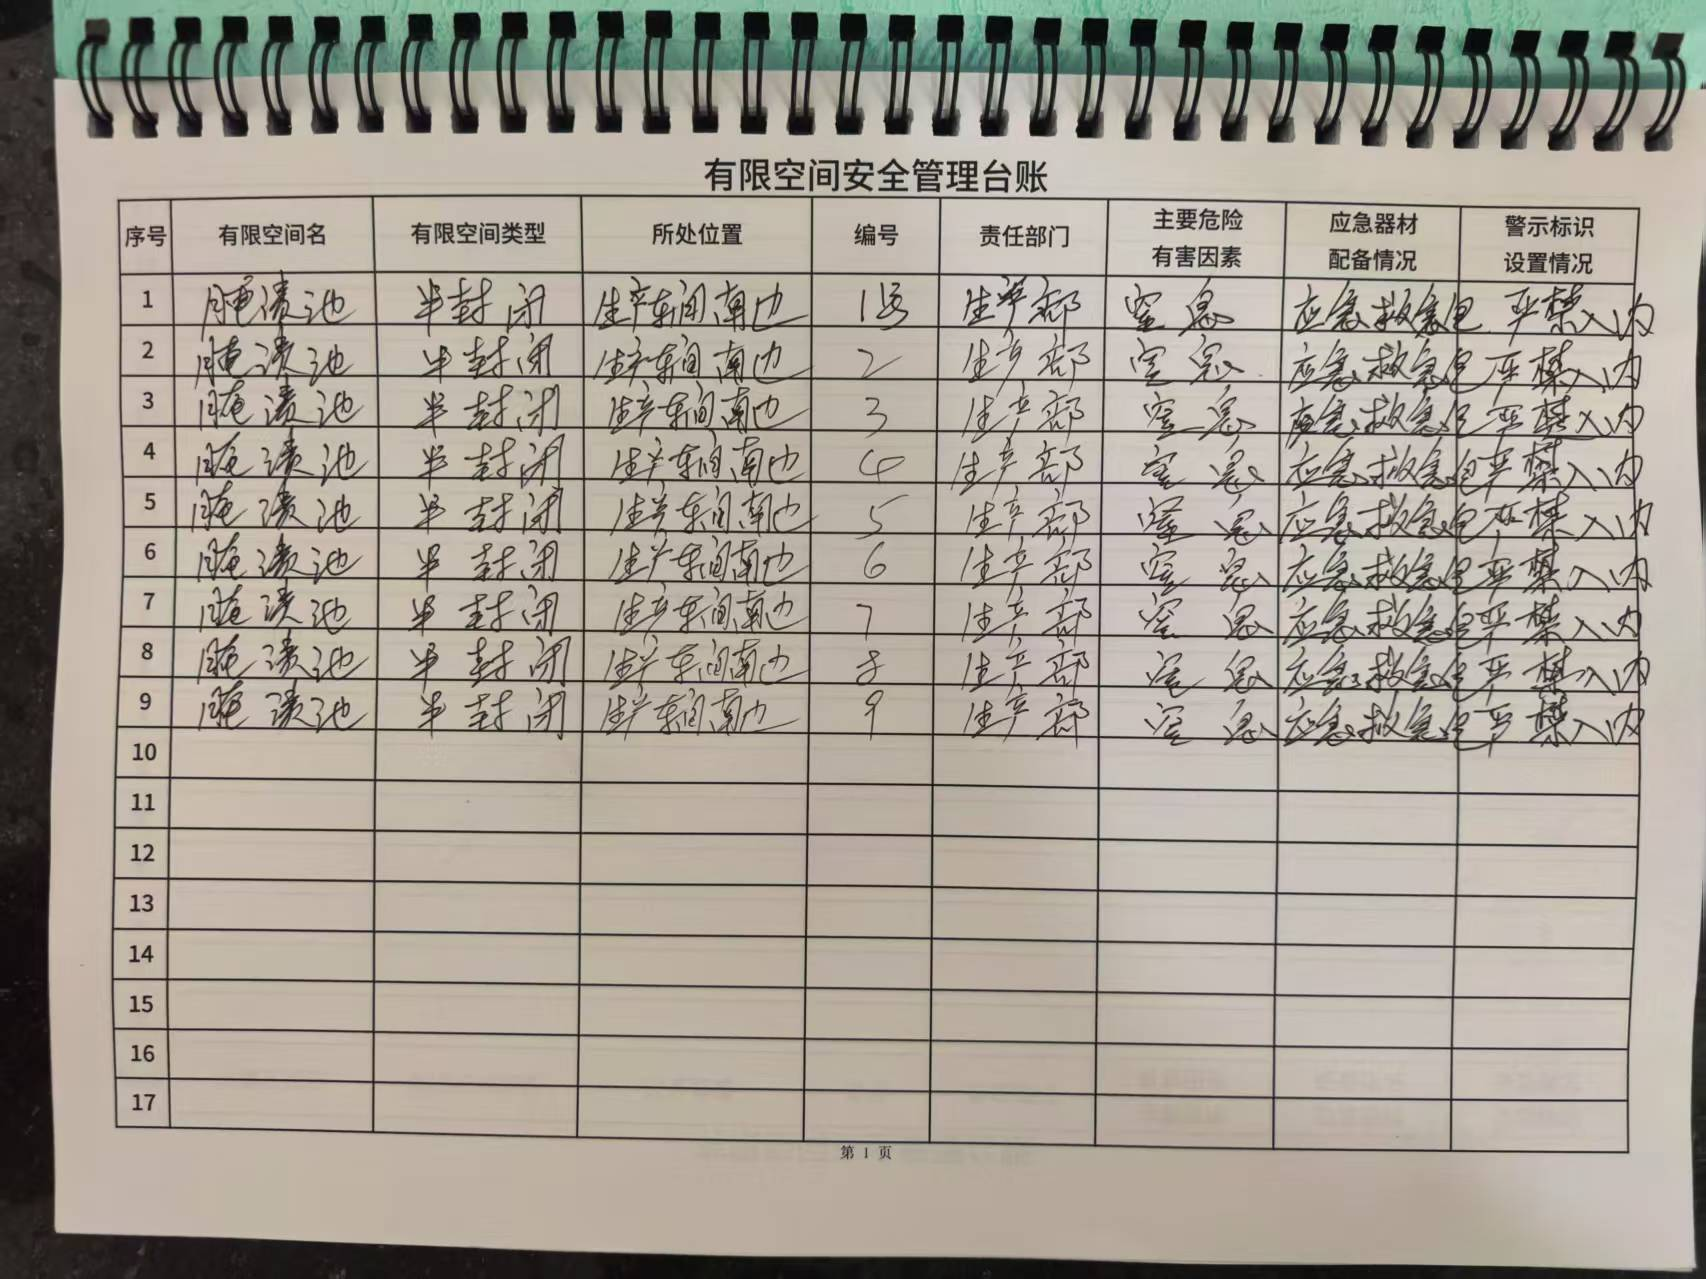 有限空间安全管理台账
序号 有限空间名 有限空间类型 所处位置 编号 责任部门 主要危险有害因素 应急器材配备情况 警示标识设置情况
1 腌渍池 半封闭 生产车间南边 1号 生产部 窒息 应急救急包 严禁入内
2 腌渍池 半封闭 生产车间南边 2 生产部 窒息 应急救急包 严禁入内
3 腌渍池 半封闭 生产车间南边 3 生产部 窒息 应急救急包 严禁入内
4 腌渍池 半封闭 生产车间南边 4 生产部 窒息 应急救急包 严禁入内
5 腌渍池 半封闭 生产车间南边 5 生产部 窒息 应急救急包 严禁入内
6 腌渍池 半封闭 生产车间南边 6 生产部 窒息 应急救急包 严禁入内
7 腌渍池 半封闭 生产车间南边 7 生产部 窒息 应急救急包 严禁入内
8 腌渍池 半封闭 生产车间南边 8 生产部 窒息 应急救急包 严禁入内
9 腌渍池 半封闭 生产车间南边 9 生产部 窒息 应急救急包 严禁入内
10
11
12
13
14
15
16
17
第 1 页